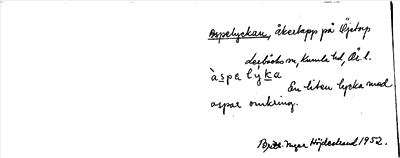 Aspelyckan, åkerlapp på Öjetorp
Lerbäcks sn, Kumla hd, Ör l.
àspelýka
En liten lycka med
aspar omkring.
Inger Höjdestrand 1952.